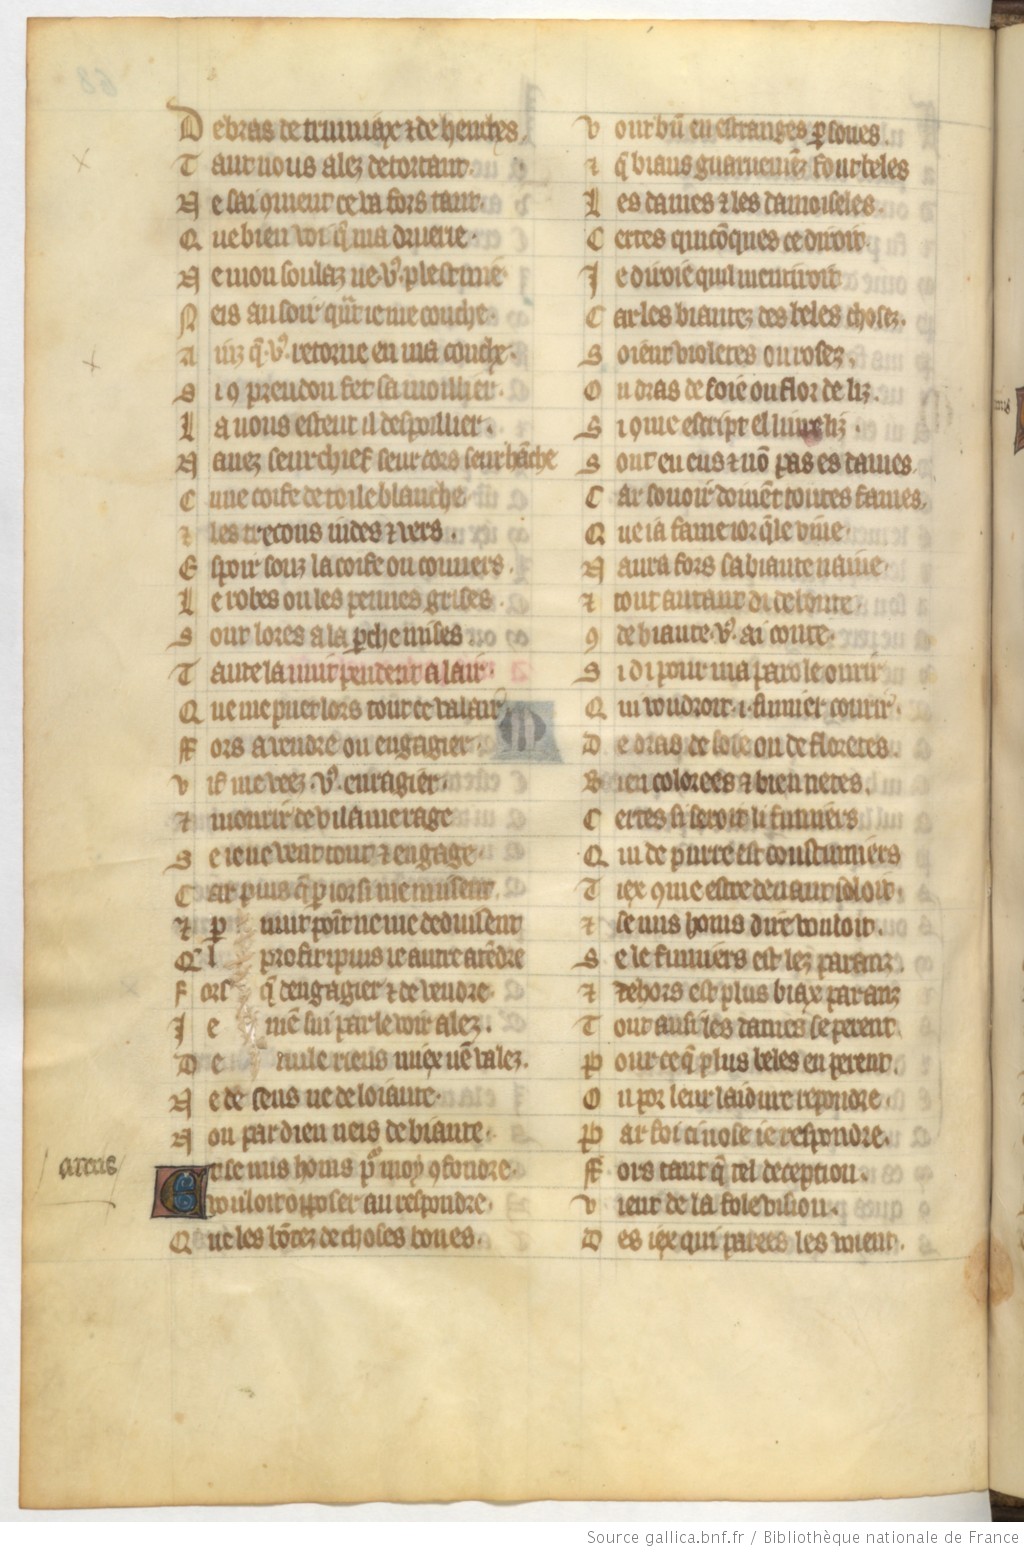 De bras de trumiax ⁊ de henches.
Tant nous alez detortant.
Ne sai ꝯment ce va fors tant.
Que bien voi q̃ ma druerie.
Ne mon soulaz ne vꝰ plest mie.
Neis au soir q̃nt ie me couche.
Ainz q̃ vꝰ retoine en ma couche.
Si ꝯ preudon fet sa moillier.
La vous estent il despoillier.
Nauez seur chief seur cors seur hãche
Cune coife de toile blanche
⁊ les trecons indes ⁊ vers.
Espoir souz la coife ou couuers.
Le robes ou les pennes grises.
Sont lores a la ꝑche mises
Tante la nuit pendent a lair.
Que me puet lors tout ce valair
Fors a vendre ou engagier.
Vif me veez vꝰ enragier.
⁊ mourir de vilaine rage
Se ie ne vent tout ⁊ engage.
Car puis q̃ ꝑ iorsi me nuisent
⁊ p nuit point ne me deduisent
Ql profit i puis ie autre atẽdre
Fors q̃ dengagier ⁊ de vendre.
Je mẽ sui par le voir alez.
De nule riens miex nẽ valez.
Ne de sens ne de loiaute.
Non par dieu neis de biaute.
aucteurs
Et se nus hons pꝰ moy ꝯfondre.
Vouloit opposer au respondre.
Que les bõtez de choses bones.
Vont bñ en estranges ꝑsones.
⁊ q̃ biaus guarnemẽz font beles
Les dames ⁊ les damoiseles.
Certes quicõques ce diroit.
Je diroie quil mentiroit
Car les biautez des beles chosez.
Soient violetes ou rosez.
Ou dras de soie ou flor de liz.
Si ꝯme escript el liure liz.
Sont en eus ⁊ nõ pas es dames.
Car souoir doiuẽt toutes fames.
Que ia fame ior q̃le viue.
Naura fors sa biaute naiue.
⁊ tout autant di de bonte
ꝯ de biaute vꝰ ai conte.
Si di pour ma parole ourir
Qui voudroit .i. fumier courir.
De dras de soie ou de floretes.
Bien colorees ⁊ bien netes.
Certes si seroit li fumiers
Qui de puire est coustumiers
Tiex ꝯme estre deuant soloit.
⁊ se nus hons dire vouloit.
Se le fumiers est lez paranz.
⁊ dehors est plus biax paranz
Tout ausi les dames se perent.
Pour ce q̃ plus beles en perent.
Ou por leur laidure repondre.
Par foi ci nose ie respondre.
Fors tant q̃ tel deception.
Vient de la fole vision.
Des iex qui parees les voient.
Source gallica.bnf.fr / Bibliothèque nationale de France